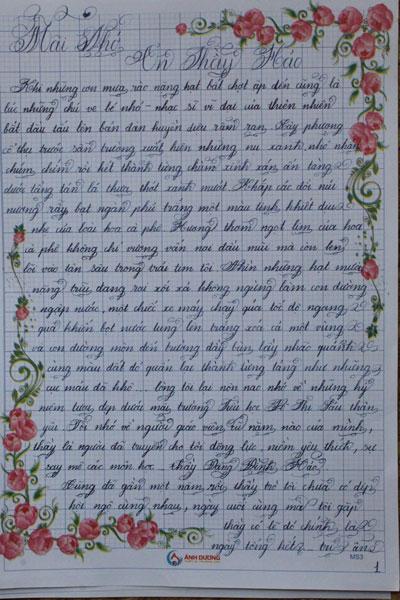 Mãi Nhớ
Ơn Thầy Hảo
Khi những cơn mưa rào nặng hạt bất chợt ập đến cũng là
lúc những chú ve bé nhỏ - nhạc sĩ vĩ đại của thiên nhiên
bắt đầu tấu lên bản đàn huyền diệu râm ran. Cây phượng
cổ thụ trước sân trường xuất hiện những nụ xanh nhỏ nhắn
chúm chím rồi kết thành từng chùm xinh xắn ẩn tàng
dưới tầng tán lá thưa thớt xanh mướt. Khắp các đồi núi
nương rẫy bạt ngàn phủ trắng một màu tinh khiết dịu
nhẹ của loài hoa cà phê. Hương thơm ngọt lịm của hoa
cà phê không chỉ vương vấn nơi đầu mũi mà còn len
lỏi vào tận sâu trong trái tim tôi. Nhìn những hạt mưa
nặng trĩu đang rơi xối xả không ngừng làm con đường
ngập nước, một chiếc xe máy chạy qua tốc độ ngang
qua khiến bọt nước tung lên trắng xóa cả một vùng
và con đường mòn đến trường đầy bùn lầy nhão quánh
cùng màu đất đỏ quắn lại thành từng tảng như những
cục máu đã khô... lòng tôi lại nôn nao nhớ về những kỷ
niệm tươi đẹp dưới mái trường Tiểu học Võ Thị Sáu thân
yêu. Tôi nhớ về người giáo viên cũ năm nào của mình,
thầy là người đã truyền cho tôi động lực, niềm yêu thích, sự
say mê các môn học... thầy Đặng Đình Hảo.
Cũng đã gần một năm rồi thầy trò tôi chưa có dịp
hội ngộ cùng nhau, ngày cuối cùng mà tôi gặp
thầy có lẽ đó chính là
ngày tổng kết tri ân
ÁNH DƯƠNG
MS3
1